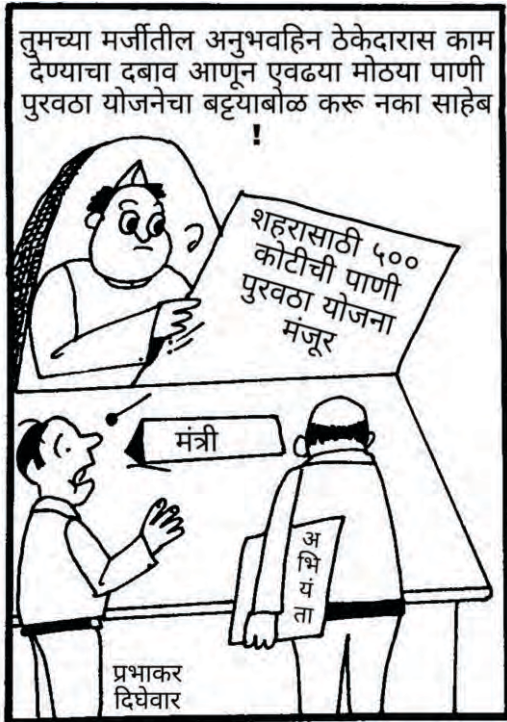 तुमच्या मर्जीतील अनुभवहिन ठेकेदारास काम
देण्याचा दबाव आणून एवढया मोठया पाणी
पुरवठा योजनेचा बट्टयाबोळ करू नका साहेब
!
शहरासाठी ५००
कोटीची पाणी
पुरवठा योजना
मंजूर
मंत्री
अ
भि
यं
ता
प्रभाकर
दिघेवार